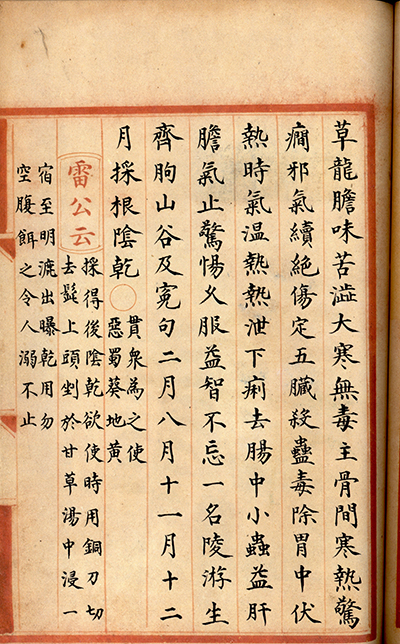 草龍膽味苦澁大寒無毒主骨間寒熱驚
癎邪氣續絕傷定五臟殺蠱毒除胃中伏
熱時氣温熱熱泄下痢去腸中小蟲益肝
膽氣止驚惕久服益智不忘一名陵游生
齊朐山谷及寃句二月八月十一月十二
月採根陰乾〇貫衆為之使
惡蜀葵地黄
雷公云採得後陰乾欲使時用銅刀切
去髭上頭剉於甘草湯中浸一
宿至明漉出曝乾用勿
空腹餌之令人溺不止